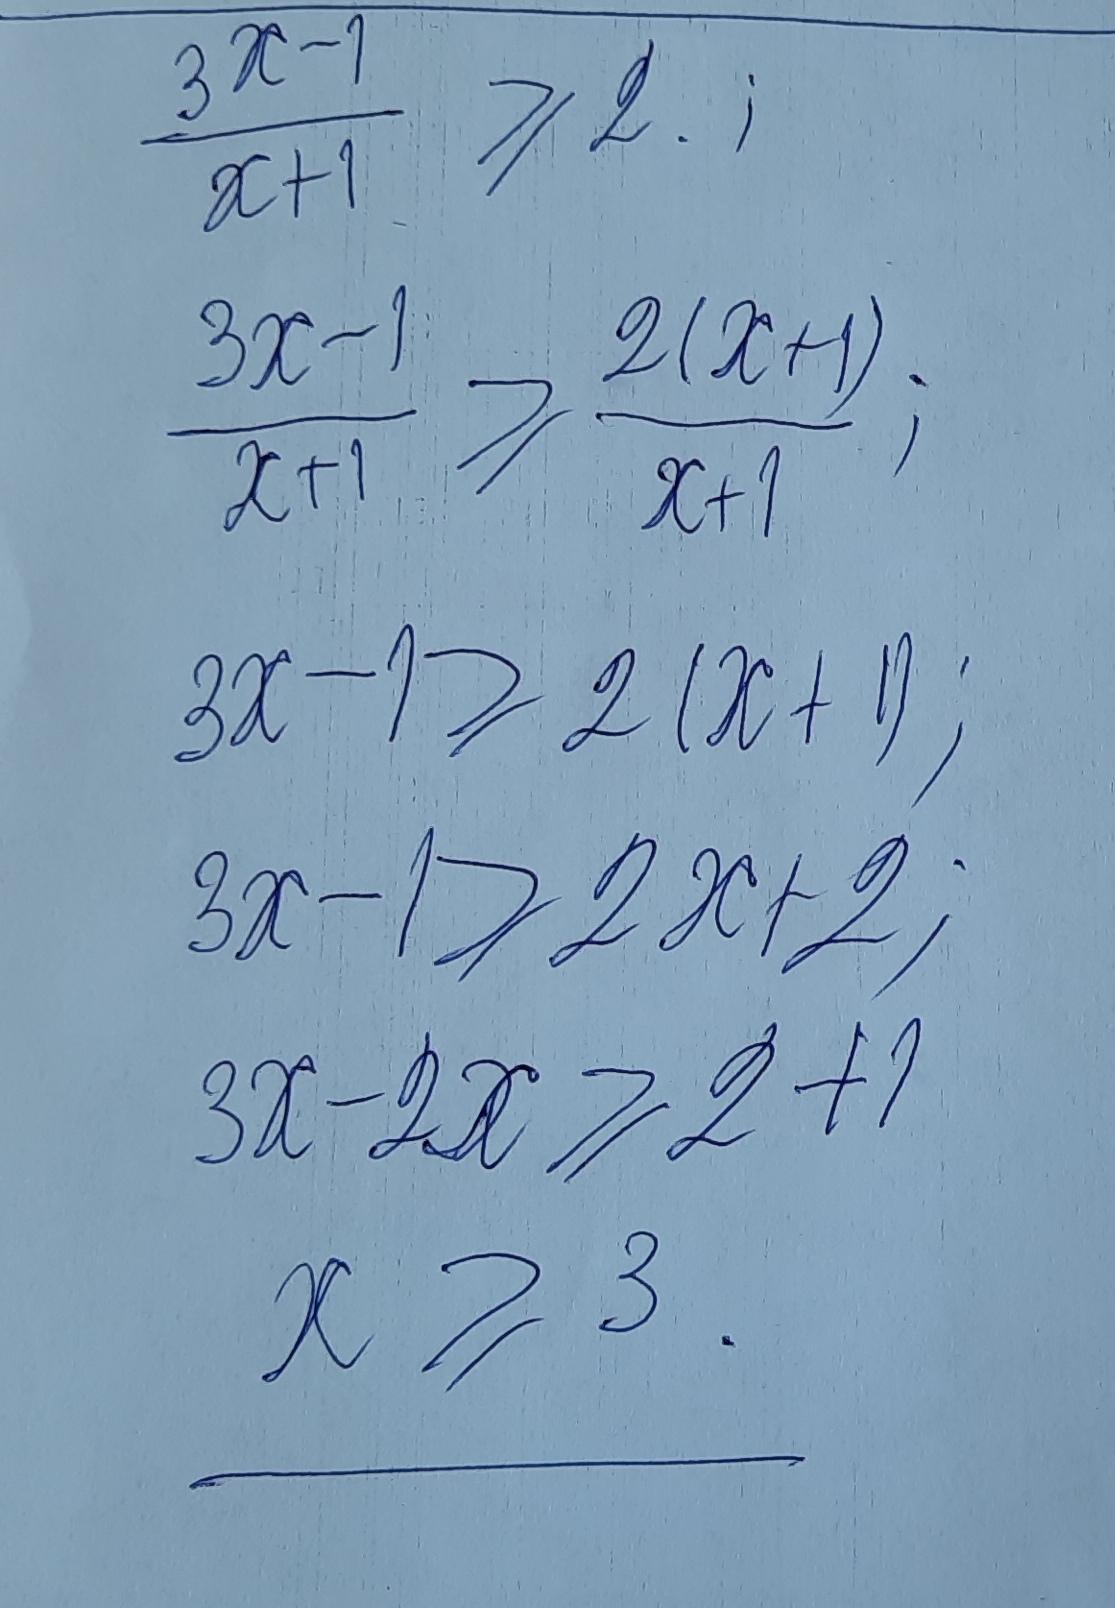 (3x-1)/(x+1) ⩾ 2. ;
(3x-1)/(x+1) ⩾ (2(x+1))/(x+1) ;
3x-1 ⩾ 2(x+1) ;
3x-1 ⩾ 2x+2 ;
3x-2x ⩾ 2+1
x ⩾ 3 .